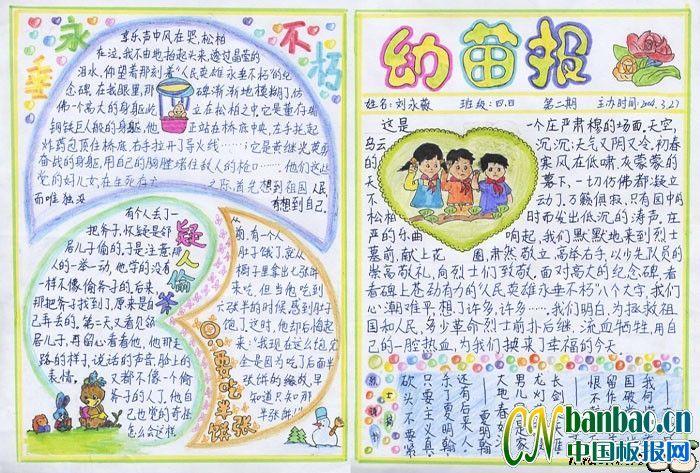 永
垂
不朽
哀乐声中风在哭,松柏
在泣,我不由地抬起头来,透过晶莹的
泪水,仰望着那刻着“人民英雄永垂不朽”的纪
念碑,在我眼里,那
碑渐渐地模糊了,仿
佛一个高大的身躯屹
立在松柏之中,它是董存瑞
钢铁巨般的身躯,他
正站在桥底中央,左手托起
炸药包顶住桥底,右手拉开了导火线……;它是黄继光英勇
奋战的身躯,用自己的胸膛堵住敌人的枪口……,他们这些
党的好儿女,在生死存亡
之际,首先想到祖国人民
而唯独没
有想到自己.
疑人偷斧
有个人丢了一
把斧子,怀疑是邻
居儿子偷的.于是注意那
人的一举一动,
一样不像偷斧子的.后来,
那把斧子找到了,原来是自
己弄丢的,第二天又看见邻
居儿子,再留心看看他,他那走
路的样子,说话的声音,脸上的
表情,
又都不像一个偷
斧子的人了,他自
己也觉的奇怪
怎么会这样.
只要吃半张饼
从
前,有一个人
肚子饿了,就从
橱子里拿出七张饼
来吃,但当他吃到
六张半的时候,感到肚子
饱了,这时,他却后悔起
来:“我现在这么饱,完
全是因为吃了后面半
张饼的缘故,早
知道只如那
半张饼!”
幼苗报
姓名:刘永薇 班级:四.四 第二期 主办时间:2004.3.27
这是
一个庄严肃穆的场面,天空,
乌云
沉沉,天气又阴又冷,初春
的
寒风在低啸,灰蒙蒙的
天
幕下,一切仿佛都凝立
不
动了.万籁俱寂,只有园中的
松柏
时而发出低沉的涛声,在
严的乐曲
响起,我们默默地来到烈士
墓前,献上花
圈,肃然敬立,高举右手,以少先队员的
崇高敬礼,向烈士们致敬,面对高大的纪念碑,看
着碑上苍劲有力的“人民英雄永垂不朽”八个大字,我们
心潮难平,想了许多,许多……,我们明白,为拯救祖
国和人民,多少革命烈士前扑后继,流血牺牲,用自
己的一腔热血,为我们换来了幸福的今天
砍头不要紧
只要主义真
夏明翰
还有后来人
CN banbao.cn
中国板报网